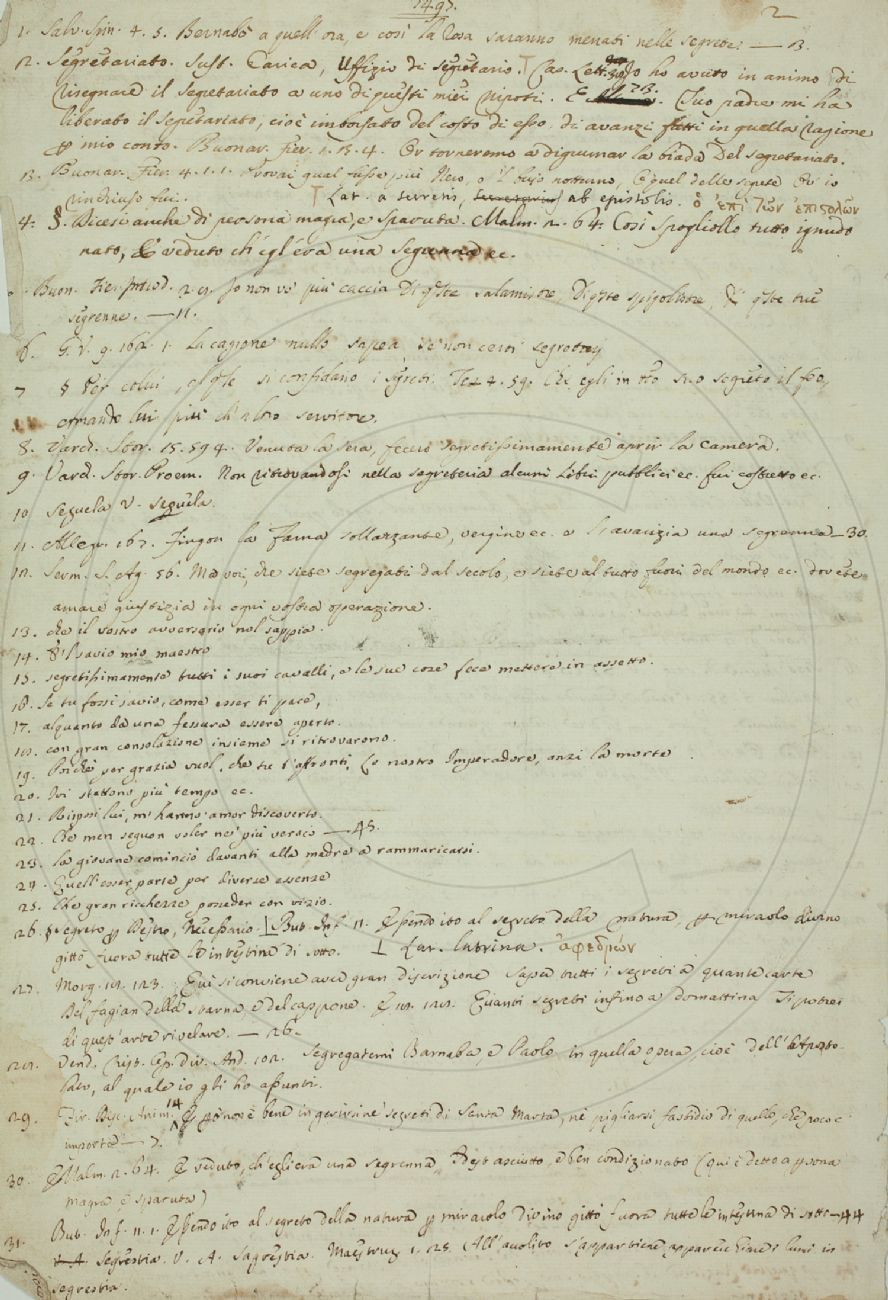 1493.
2
1. Salv. Spin. 4. 5. Bernabò a quell'ora, e così la Rosa saranno menati nelle segrete. — 13.
12. Segretariato. Sust. Carica, Uffizio di segretario. Cas. Lett. Io ho avuto in animo di
risegnare il segretariato a uno di questi miei nipoti. E 73. Suo padre mi ha
liberato il segretariato, cioè imborsato del costo di esso, di avanzi fatti in quella ragione
p mio conto. Buonar. Fier. 1. 5. 4. Or torneremo a digrumar la biada Del segretariato.
13. Buonar. Fier. 4. 1. 1. Provai qual fusse più nero, o 'l buio notturno, O quel delle segrete Ov' io
rinchiuso fui. Lat. a secretis, ab epistolis. ὁ ἐπὶ τῶν ἐπιστολῶν
4. §. Dicesi anche di persona magra, e sparuta. Malm. 2. 64. Così spogliollo tutto ignudo
nato, E veduto ch'egl'era una segrenna ec.
Buon. Fier. 2. Io non vo' più caccia Di qste salamistre, Di qste spigolistre, Di qste tue
segrenne. — 11.
6. G. V. 9. 162. 1. La cagione nullo sapea se non certi segretarj
7 § Per colui, al qle si confidano i segreti. Tes. 4. 59. Che egli in tto suo segreto il feo,
amando lui più ch'altro servitore.
8. Varch. Stor. 15. 594. Venuta la sera, fecero segretissimamente aprir la camera.
9. Varch. Stor. Proem. Non ritrovandosi nella segreteria alcuni libri pubblici ec. fui costretto ec.
10 Seguela V. seguela.
11. Allegr. 167. Fingon la Fama sollazzante, vergine ec. e l'avarizia una segrenna — 30.
12. Serm. S. Ag. 56. Ma voi, che siete segregati dal secolo, e siete al tutto fuori del mondo ec. dovete
amare giustizia in ogni vostra operazione.
13. che il vostro avversario nol sappia.
14. E 'l savio mio maestro
15. segretissimamente tutti i suoi cavalli, e le sue cose fece mettere in assetto.
16. Se tu fossi savio, come esser ti pare,
17. alquanto da una fessura essere aperto.
18. con gran consolazione insieme si ritrovarono.
19. Poichè per grazia vuol, che tu t'affronti, Lo nostro Imperadore, anzi la morte
20. Ivi stettono più tempo ec.
21. Risposi lui, m'hanno amor discoverto.
22. Che men seguon voler ne' più veraci — 45.
23. la giovane cominciò davanti alla madre a rammaricarsi.
24. Quell'esser parte per diverse essenze
25. Che gran ricchezze posseder con vizio.
26. § segreto p Destro, Necessario. But. Inf. 11. Essendo ito al segreto della natura, p miracolo divino
gittò fuora tutte le intestina di sotto. Lat. latrina. ἀφεδρών
27. Morg. 18. 123. Qui si conviene aver gran discrizione Saper tutti i segreti a quante carte
Del fagian della starna e del cappone. E 18. 128. Quanti segreti infino a domattina Ti potrei
di quest'arte rivelare. — 26.
28. Vend. Crist. Op. Div. And. 102. Segregatemi Barnaba, e Paolo in quella opera, cioè dell'Aposto-
lato, al quale io gli ho assunti.
29. Fir. Disc. Anim. 14 E non è bene ingerirsi ne' segreti di Santa Marta, nè pigliarsi fastidio di quello, che poco c'
importa — 7.
30. Malm. 2. 64. E veduto, ch'egli era una segrenna, Idest asciutto, e ben condizionato (qui è detto a psona
magra e sparuta)
31. But. Inf. 11. 1. Essendo ito al segreto della natura p miracolo divino gittò fuora tutte le intestina di sotto — 44
Segrestia. V. A. Sagrestia. Maestruz. 1. 28. All'avolito s'appartiene apparecchiare i lumi in
segrestia.